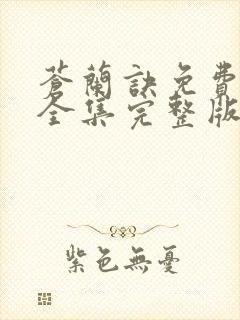 蒼蘭訣免費
全集完整版
紫色無憂